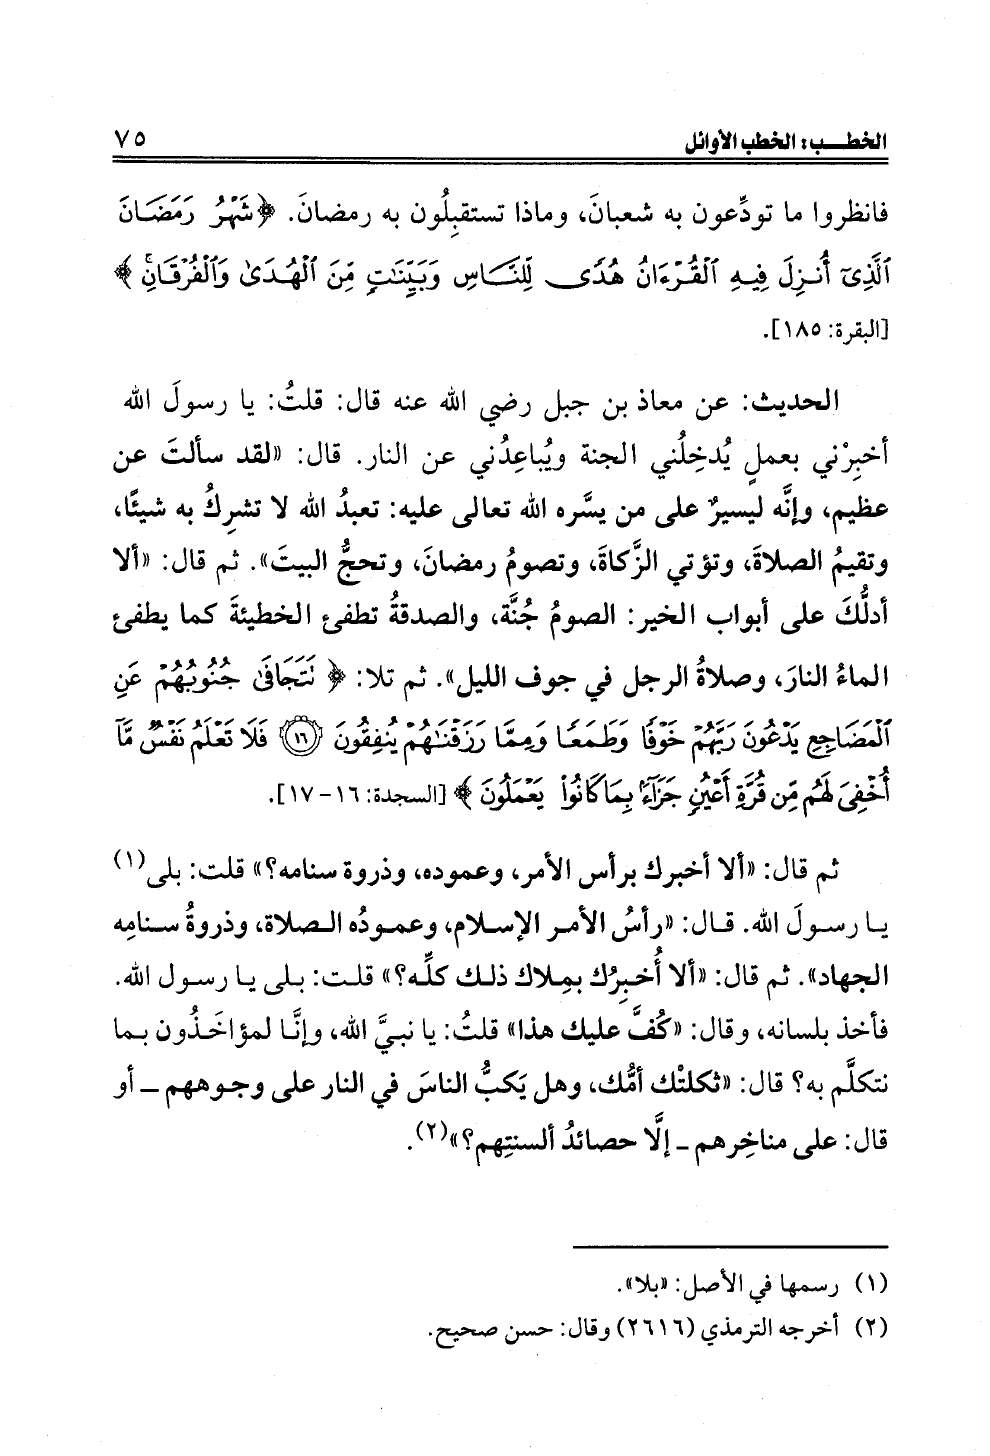 الخطـب: الخطب الأوائل ٧٥
فانظروا ما تودِّعون به شعبانَ، وماذا تستقبِلُون به رمضانَ. ﴿شَهْرُ رَمَضَانَ
ٱلَّذِىٓ أُنزِلَ فِيهِ ٱلْقُرْءَانُ هُدًى لِّلنَّاسِ وَبَيِّنَٰتٍ مِّنَ ٱلْهُدَىٰ وَٱلْفُرْقَانِۚ﴾
[البقرة: ١٨٥].
الحديث: عن معاذ بن جبل رضي الله عنه قال: قلتُ: يا رسولَ الله
أخبِرْني بعملٍ يُدخِلُني الجنة ويُباعِدُني عن النار. قال: «لقد سألتَ عن
عظيم، وإنَّه ليسيرٌ على من يسَّره الله تعالى عليه: تعبدُ الله لا تشرِكُ به شيئًا،
وتقيمُ الصلاةَ، وتؤتي الزَّكاةَ، وتصومُ رمضانَ، وتحجُّ البيتَ». ثم قال: «ألا
أدلُّكَ على أبواب الخير: الصومُ جُنَّة، والصدقةُ تطفئ الخطيئةَ كما يطفئ
الماءُ النارَ، وصلاةُ الرجل في جوف الليل». ثم تلا: ﴿نَتَجَافَىٰ جُنُوبُهُمْ عَنِ
ٱلْمَضَاجِعِ يَدْعُونَ رَبَّهُمْ خَوْفًا وَطَمَعًا وَمِمَّا رَزَقْنَٰهُمْ يُنفِقُونَ ١٦ فَلَا تَعْلَمُ نَفْسٌ مَّآ
أُخْفِىَ لَهُم مِّن قُرَّةِ أَعْيُنٍ جَزَآءًۢ بِمَا كَانُوا۟ يَعْمَلُونَ﴾ [السجدة: ١٦-١٧].
ثم قال: «ألا أخبرك برأس الأمر، وعموده، وذروة سنامه؟» قلت: بلى(١)
يا رسولَ الله. قال: «رأسُ الأمر الإسلام، وعمودُه الصلاة، وذروةُ سنامِه
الجهاد». ثم قال: «ألا أُخبِرُك بمِلاك ذلك كلِّه؟» قلت: بلى يا رسول الله.
فأخذ بلسانه، وقال: «كُفَّ عليك هذا» قلتُ: يا نبيَّ الله، وإنَّا لمؤاخَذُون بما
نتكلَّم به؟ قال: «ثكلتْك أمُّك، وهل يَكبُّ الناسَ في النار على وجوههم ـ أو
قال: على مناخِرهم ـ إلَّا حصائدُ ألسنتِهم؟»(٢).
(١) رسمها في الأصل: «بلا».
(٢) أخرجه الترمذي (٢٦١٦) وقال: حسن صحيح.